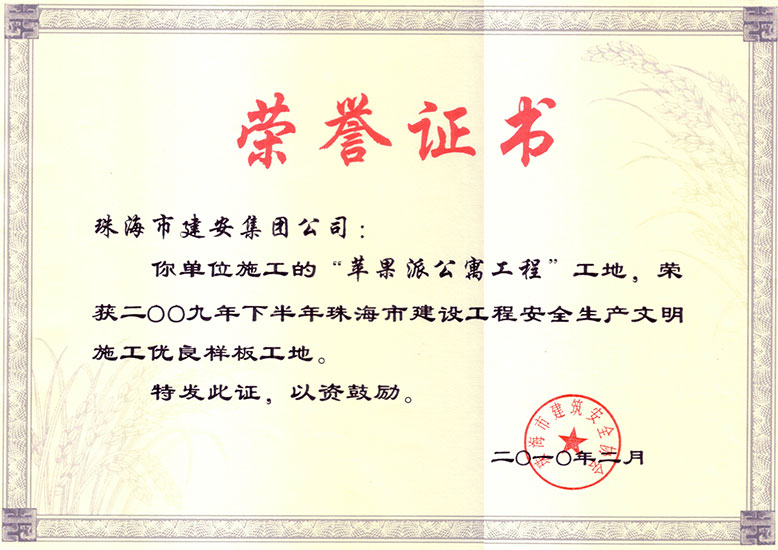 荣誉证书
珠海市建安集团公司：
你单位施工的“苹果派公寓工程”工地，荣
获二〇〇九年下半年珠海市建设工程安全生产文明
施工优良样板工地。
特发此证，以资鼓励。
珠海市建筑安全协会
二〇一〇年二月